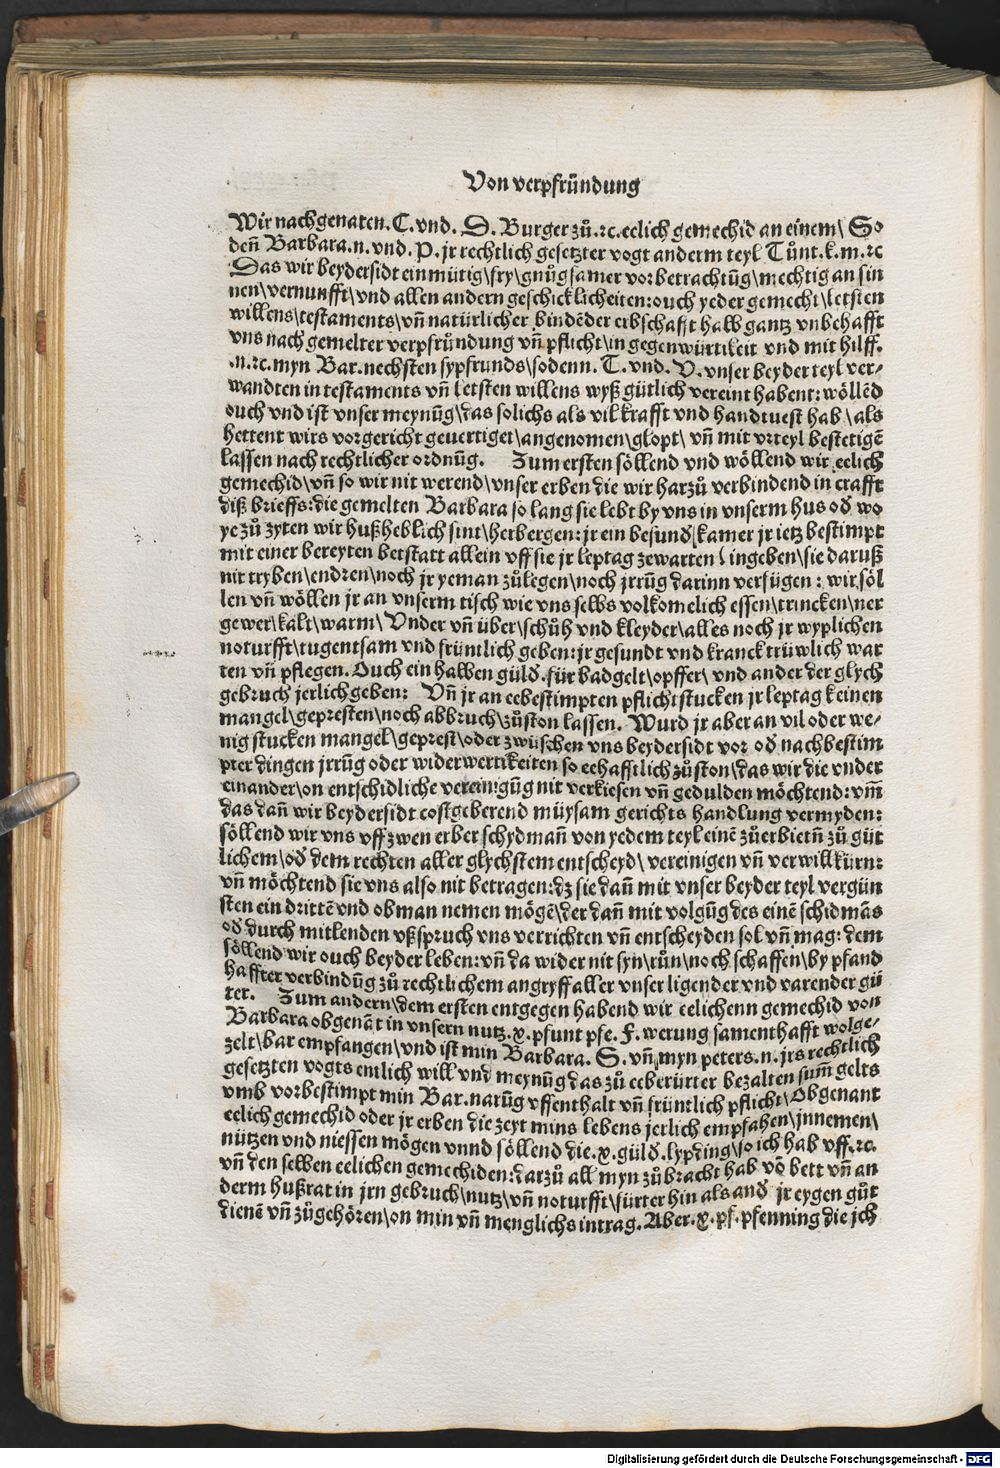 Von verpfründung
Wir nachgenaten. C. vnd. D. Burger zů. ꝛc. eelich gemechid an einem\ So
deñ Barbara. n. vnd. P. jr rechtlich gesetzter vogt anderm teyl Tůnt. k. m. ꝛc
Das wir beydersidt einmütig\fry\gnůgsamer vorbetrachtũg\mechtig an sin
nen\vernunfft\vnd allen andern geschicklicheiten: ouch yeder gemecht\letsten
willens\testaments\vñ natürlicher bindẽder erbschafft halb gantz vnbehafft
vns nach gemelter verpfründung vñ pflicht\in gegenwürtikeit vnd mit hilff.
.n. ꝛc. myn Bar. nechsten sypfrunds\sodenn. T. vnd. V. vnser beyder teyl ver-
wandten in testaments vñ letsten willens wyß gütlich vereint habent: wöllẽd
ouch vnd ist vnser meynũg\das solichs als vil krafft vnd handtvest hab\als
hettent wirs vor gericht geuertiget\angenomen\glopt\ vñ mit vrteyl bestetigẽ
lassen nach rechtlicher ordnũg. Zum ersten söllend vnd wöllend wir eelich
gemechid\vñ so wir nit werend\vnser erben die wir harzů verbindend in crafft
diß brieffs: die gemelten Barbara so lang sie lebt by vns in vnserm hus oď wo
ye zů zyten wir hußheblich sint\herbergen: jr ein besund kamer jr ietz bestimpt
mit einer bereyten betstatt allein vff sie jr leptag zewarten\ingeben\sie daruß
nit tryben\endren\noch jr yeman zůlegen\noch jrrũg darinn verfügen: wir söl
len vñ wöllen jr an vnserm tisch wie vns selbs volkomelich essen\trincken\ner
gewer\kalt\warm\ Vnder vñ über\schůh vnd kleyder\alles noch jr wyplichen
noturfft\tugentsam vnd früntlich geben: jr gesundt vnd kranck trüwlich war
ten vñ pflegen. Ouch ein halben güld. für badgelt\opffer\ vnd ander der glych
gebruch jerlich geben: Vñ jr an eebestimpten pflichtstucken jr leptag keinen
mangel\gepresten\noch abbruch\zůston lassen. Wurd jr aber an vil oder we-
nig stucken mangel\geprest\oder zwüschen vns beydersidt vor oď nachbestim
pter dingen jrrũg oder widerwertikeiten so eehafftlich zůston\das wir die vnder
einander\on entschidliche vereinigũg nit verkiesen vñ gedulden möchtend: vm̃
das dañ wir beydersidt costgeberend müysam gerichts handlung vermyden:
söllend wir vns vff zwen erber schydmañ von yedem teyl einẽ zůerbietñ zů güt
lichem\oď dem rechten aller glychstem entscheyd\ vereinigen vñ verwillkürn:
vñ möchtend sie vns also nit betragen: dz sie dañ mit vnser beyder teyl vergün
sten ein drittẽ vnd obman nemen mögẽ\der dañ mit volgũg des einẽ schidmãs
oď durch mitlenden vßspruch vns verrichten vñ entscheyden sol vñ mag: dem
söllend wir ouch beyder leben: vñ da wider nit syn\tůn\noch schaffen\by pfand
haffter verbindũg zů rechtlichem angryff aller vnser ligender vnd varender gü
ter. Zum andern\dem ersten entgegen habend wir eelichenn gemechid von
Barbara obgenãt in vnsern nutz. x. pfunt pfe. F. werung samenthafft wolge-
zelt\bar empfangen\vnd ist min Barbara. S. vñ myn peters. n. jrs rechtlich
gesetzten vogts entlich will vnd meynũg das zů eeberürter bezalten sum̃ gelts
vmb vorbestimpt min Bar. narũg vffenthalt vñ früntlich pflicht\Obgenant
eelich gemechid oder jr erben die zeyt mins lebens jerlich empfahen\jnnemen\
nützen vnd niessen mögen vnnd söllend die. x. güld. lypding\so ich hab vff. ꝛc.
vñ den selben eelichen gemechiden: darzů all myn zůbracht hab võ bett vñ an
derm hußrat in jrn gebruch\nutz\vñ noturfft\fürter hin als anď jr eygen gůt
dienẽ vñ zůgehören\on min vñ menglichs intrag. Aber. x. pf. pfenning die jch
Digitalisierung gefördert durch die Deutsche Forschungsgemeinschaft - DFG